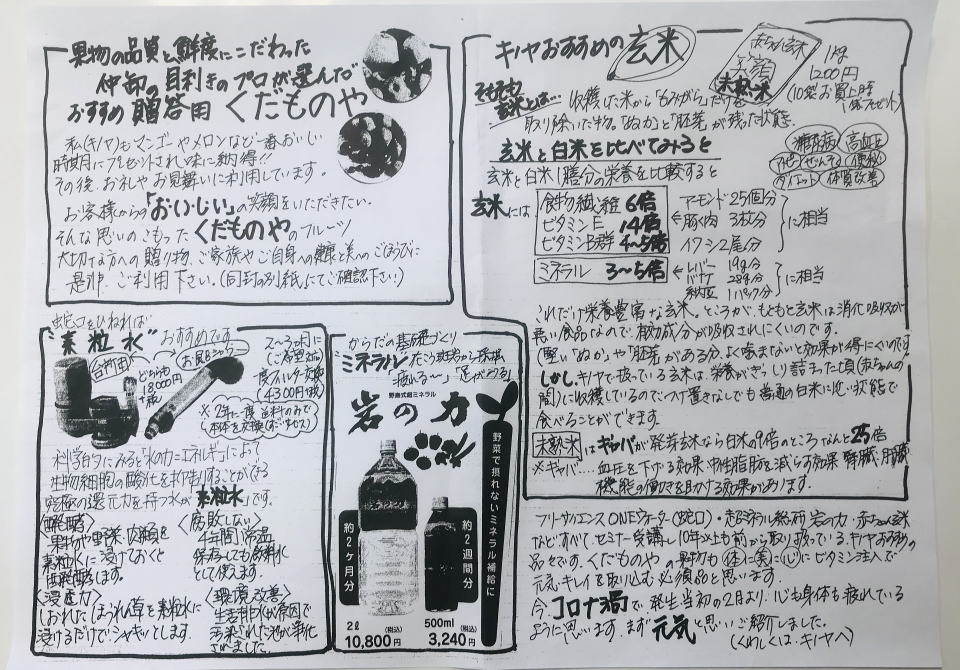 果物の品質と鮮度にこだわった
仲卸の目利きのプロが選んだ
おすすめ 贈答用 くだものや
私(キノヤ)もマンゴーやメロンなど一番おいしい
時期にプレゼントされ味に納得!!
その後、お礼やお見舞いに利用しています。
お客様からの「おいしい」の笑顔をいただきたい。
そんな思いのこもった くだものやのフルーツ
大切な方への贈り物、ご家族やご自身への健康と美へのごほうびに
是非、ご利用下さい。(同封の別紙にてご確認下さい)
キノヤおすすめの玄米
赤ちゃん玄米
未熟米
1kg
1200円
(10袋お買上時
1袋プレゼント)
そもそも
玄米とは…
収穫した米から「もみがら」だけを
取り除いた物。「ぬか」と「胚芽」が残った状態。
玄米と白米を比べてみると
玄米と白米1膳分の栄養を比較すると
糖尿病 高血圧
アンチエイジング 便秘
ダイエット 体質改善
玄米には
食物繊維 6倍 アーモンド25個分
ビタミンE 14倍 ← 豚肉 3枚分 に相当
ビタミンB群 4~5倍 イワシ2尾分
ミネラル 3~5倍 ← レバー 19g分
バナナ 289g分 に相当
納豆 1パック分
これだけ栄養豊富な玄米。ところが、もともと玄米は消化吸収が
悪い食品なので、有効成分が吸収されにくいのです。
(堅い「ぬか」や「胚芽」がある分、よく噛まないと効果が得にくいのです)
しかし、キノヤで扱っている玄米は、栄養がぎっしり詰まった頃(赤ちゃんの
間)に収穫しているのでつけ置きなしでも普通の白米に近い状態で
食べることができます。
未熟米はギャバが発芽玄米なら白米の9倍のところなんと25倍
※ギャバ…血圧を下げる効果・中性脂肪を減らす効果 腎臓・肝臓
機能の働きを助ける効果があります。
蛇口をひねれば
"素粒水" おすすめです。
台所用
お風呂シャワー
どちらも
18000円
+税
1度フィルター交換
(4300円+税)
※2年に一度送料のみで
本体を交換
科学的にみると「水の力=エネルギー」によって
生物細胞の酸化を抑制することができる
究極の還元力を持つ水が「素粒水」です。
〈酸醸〉
果物や野菜、肉類を
素粒水に浸けておくと
醗酵します。
〈浸透力〉
しおれた ほうれん草を素粒水に
浸けるだけでシャキッとします。
〈腐敗しない〉
4年間常温
保存しても飲料水
として使えます。
〈環境改善〉
生活排水が原因で
汚染された池が浄化
されました。
からだの基礎づくり
ミネラル
「疲れる~」「足がつる」
野島式超ミネラル
岩の力
野菜で摂れないミネラル補給に
約2ヶ月分
約2週間分
2ℓ
10,800円(税込)
500ml
3,240円(税込)
フリーサイエンスONEウォーター(蛇口)・超ミネラル総研 岩の力・赤ちゃん玄米
などすべて、セミナー受講し10年以上も前から取り扱っている、キヤおすすめの
品々です。くだものやの果物も (体)に(美)に(心)に ビタミン注入で
元気・キレイを取り込む必須品と思います。
今、コロナ渦で、発生当初の2月より、心も身体も疲れている
ように思います。まず元気と思い、ご紹介しました。
(くわしくは、キノヤへ)